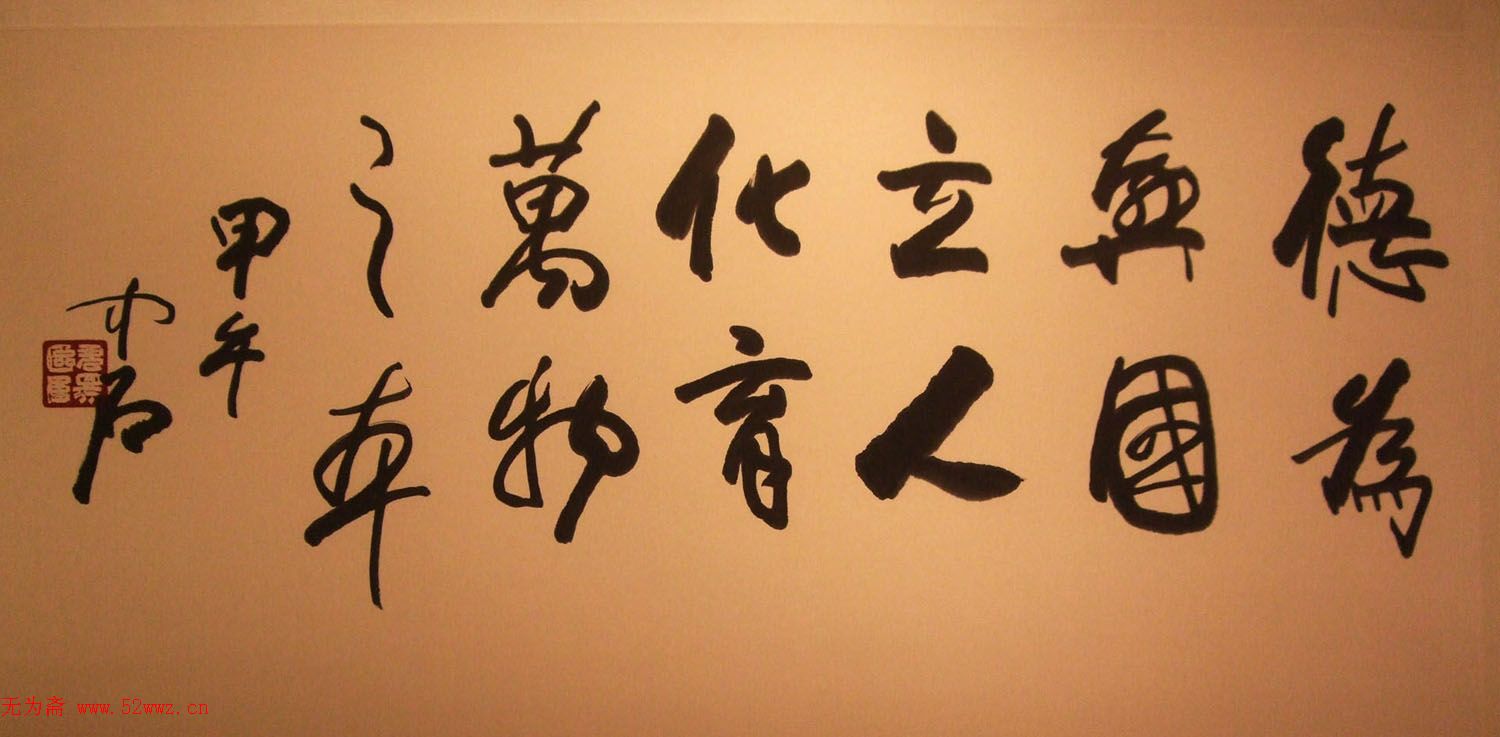 德為
興國
立人
化育
萬物
之本
甲午
中石
无为斋 www.52wwz.cn